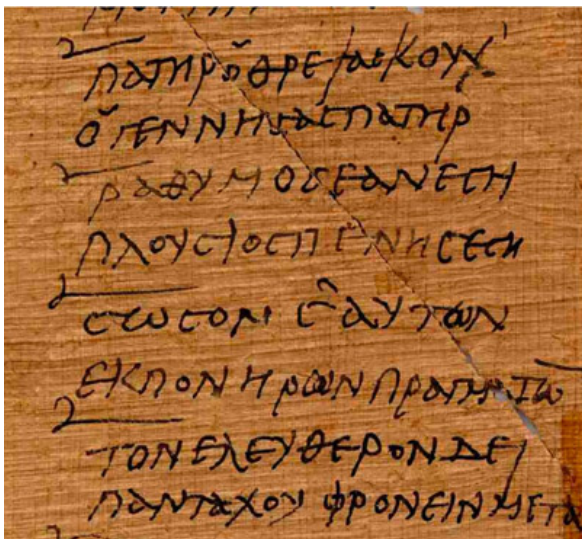 ΠΑΤΗΡΟΘΡΕΨΑϹΚΟΥΧ'
ΟΓΕΝΝΗϹΑϹΠΑΤΗΡ
ΡΑΘΥΜΟϹΕΑΝΕϹΗ
ΠΛΟΥϹΙΟϹΠΕΝΗϹΕϹΗ
ϹΩϹΟΝ ϹΕΑΥΤΩΝ
ΕΚΠΟΝΗΡΩΝΠΡΑΓΜΑΤΩ̅
ΤΟΝΕΛΕΥΘΕΡΟΝΔΕΙ
ΠΑΝΤΑΧΟΥΦΡΟΝΕΙΝΜΕΓΑ